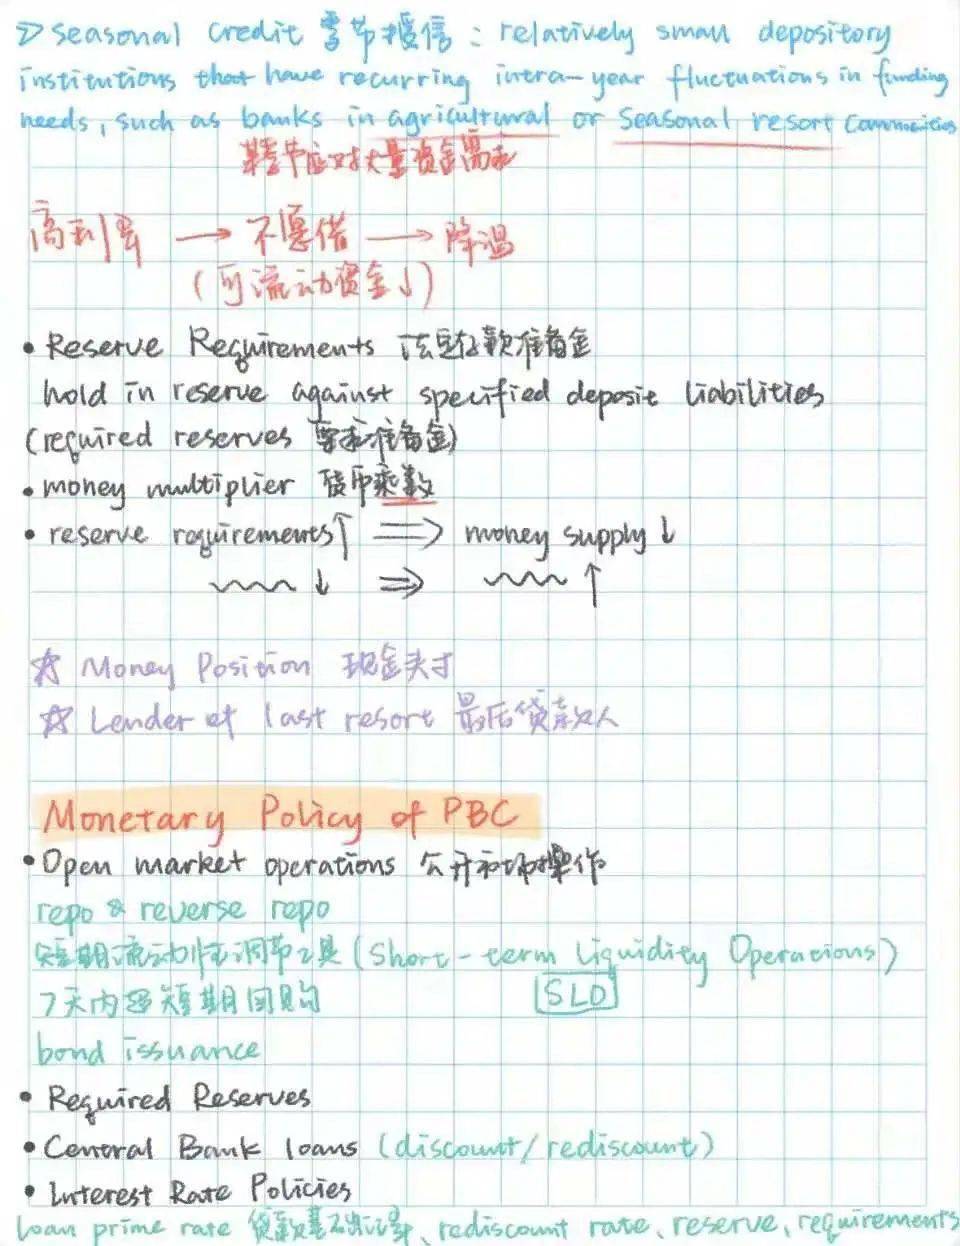 > Seasonal Credit 季节授信 : relatively small depository
institutions that have recurring intra-year fluctuations in funding
needs, such as banks in agricultural or seasonal resort communities
季节应对大量资金需求
高利率 → 不愿借 → 降温
(可流动资金↓)
• Reserve Requirements 法定存款准备金
hold in reserve against specified deposit liabilities
(required reserves 要求准备金)
• money multiplier 货币乘数
• reserve requirements↑ ⇒ money supply↓
↓ ⇒ ↑
☆ Money Position 现金头寸
☆ Lender of last resort 最后贷款人
Monetary Policy of PBC
• Open market operations 公开市场操作
repo & reverse repo
短期流动性调节工具 (Short-term Liquidity Operations)
7天内超短期回购 SLO
bond issuance
• Required Reserves
• Central Bank loans (discount/rediscount)
• Interest Rate Policies
loan prime rate 贷款基础利率、rediscount rate、reserve、requirements